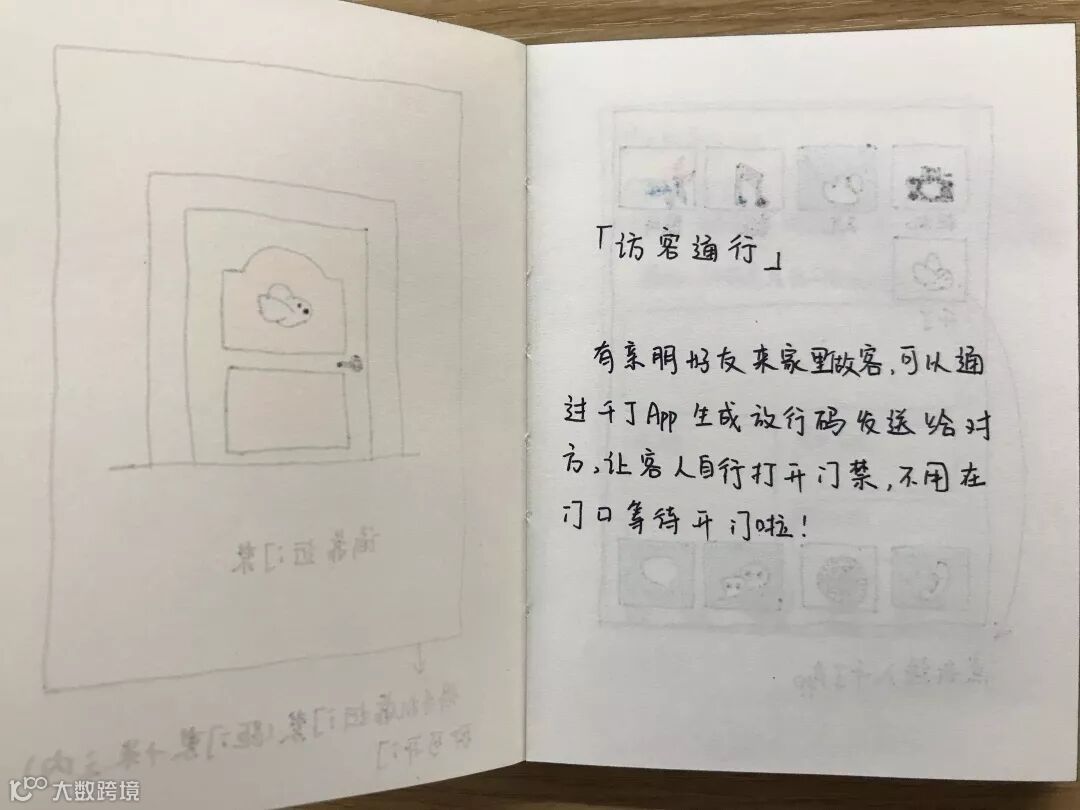 「访客通行」
有亲朋好友来家里做客,可以通
过千丁App生成放行码发送给对
方,让客人自行打开门禁,不用在
门口等待开门啦!
请靠近门禁
点击进入千丁App
大数跨境